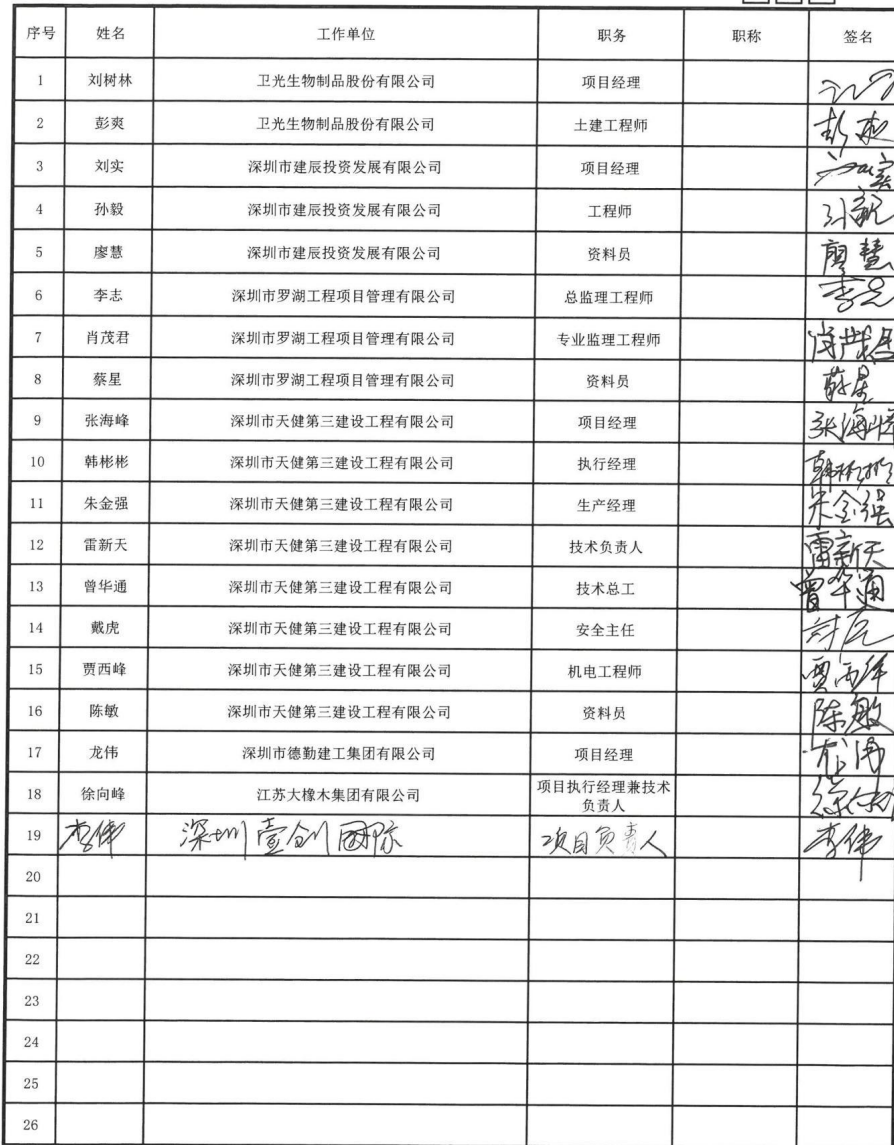 序号 姓名 工作单位 职务 职称 签名
1 刘树林 卫光生物制品股份有限公司 项目经理
2 彭爽 卫光生物制品股份有限公司 土建工程师 彭爽
3 刘实 深圳市建辰投资发展有限公司 项目经理
4 孙毅 深圳市建辰投资发展有限公司 工程师 孙毅
5 廖慧 深圳市建辰投资发展有限公司 资料员 廖慧
6 李志 深圳市罗湖工程项目管理有限公司 总监理工程师 李志
7 肖茂君 深圳市罗湖工程项目管理有限公司 专业监理工程师 肖茂君
8 蔡星 深圳市罗湖工程项目管理有限公司 资料员 蔡星
9 张海峰 深圳市天健第三建设工程有限公司 项目经理 张海峰
10 韩彬彬 深圳市天健第三建设工程有限公司 执行经理 韩彬彬
11 朱金强 深圳市天健第三建设工程有限公司 生产经理 朱金强
12 雷新天 深圳市天健第三建设工程有限公司 技术负责人 雷新天
13 曾华通 深圳市天健第三建设工程有限公司 技术总工 曾华通
14 戴虎 深圳市天健第三建设工程有限公司 安全主任
15 贾西峰 深圳市天健第三建设工程有限公司 机电工程师 贾西峰
16 陈敏 深圳市天健第三建设工程有限公司 资料员 陈敏
17 龙伟 深圳市德勤建工集团有限公司 项目经理 龙伟
18 徐向峰 江苏大橡木集团有限公司 项目执行经理兼技术
负责人
19 李伟 深圳壹创国际 项目负责人 李伟
20
21
22
23
24
25
26